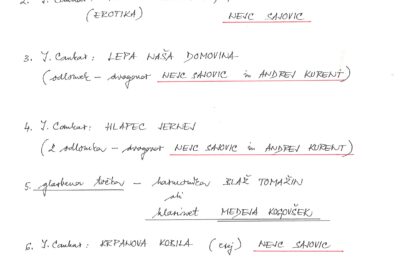 2. I. Cankar:
(EROTIKA) NEJC SAJOVIC
3. I. Cankar: LEPA NAŠA DOMOVINA
(odlomek – dvogovor NEJC SAJOVIC in ANDREJ KURENT)
4. I. Cankar: HLAPEC JERNEJ
(2 odlomka – dvogovor NEJC SAJOVIC in ANDREJ KURENT)
5. glasbena točka – harmonika BLAŽ TOMAŽIN
ali
klarinet MEDEJA KOGOVŠEK
6. I. Cankar: KRPANOVA KOBILA (esej) NEJC SAJOVIC